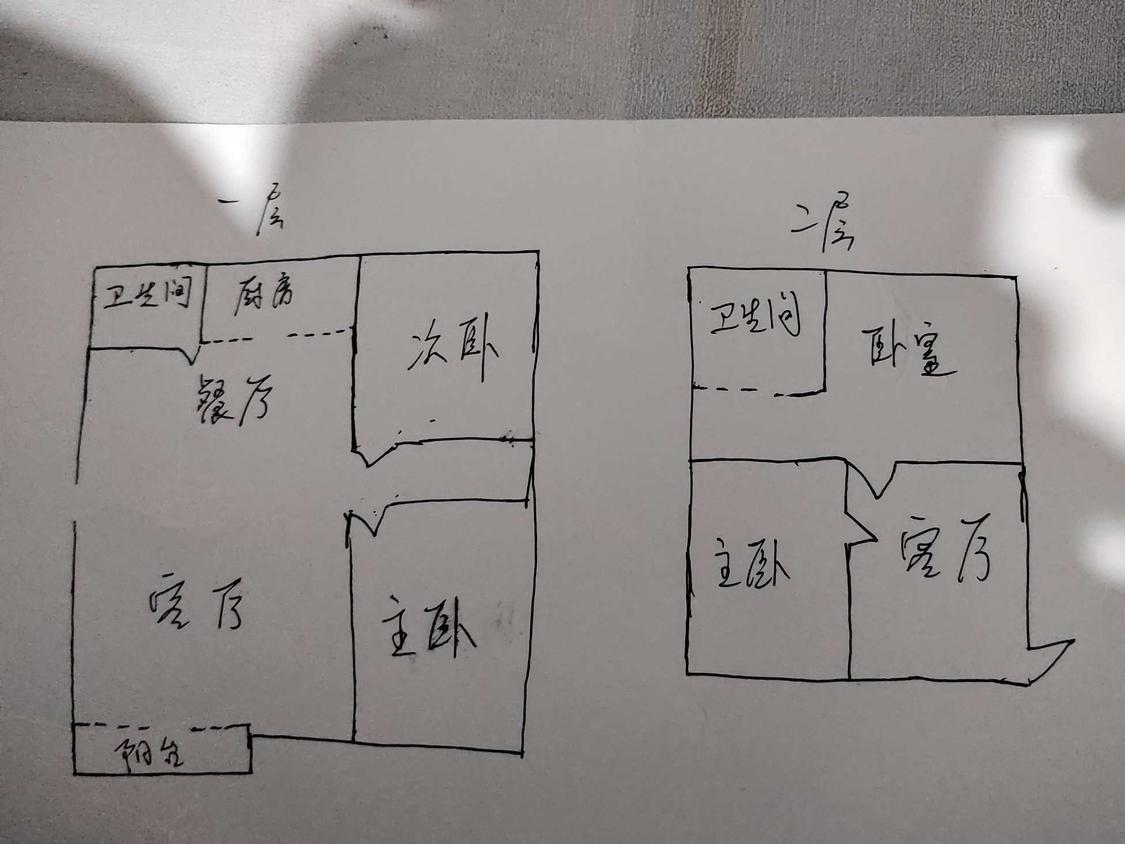 一层
卫生间
厨房
次卧
餐厅
客厅
主卧
阳台
二层
卫生间
卧室
主卧
客厅